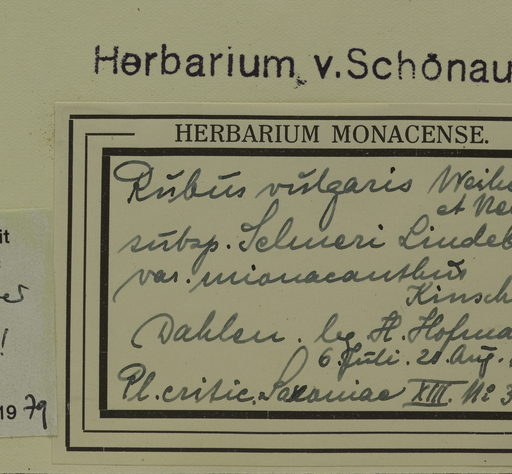 Herbarium v. Schönau
HERBARIUM MONACENSE.
Rubus vulgaris Weihe
et Nee
subsp. Selmeri Lindeb
var. mionacanthus
Kinsch
Dahlen. leg H. Hofma
6. Juli. 20. Aug.
Pl. critic. Saxoniae XIII. No 3
it
er
!
1979